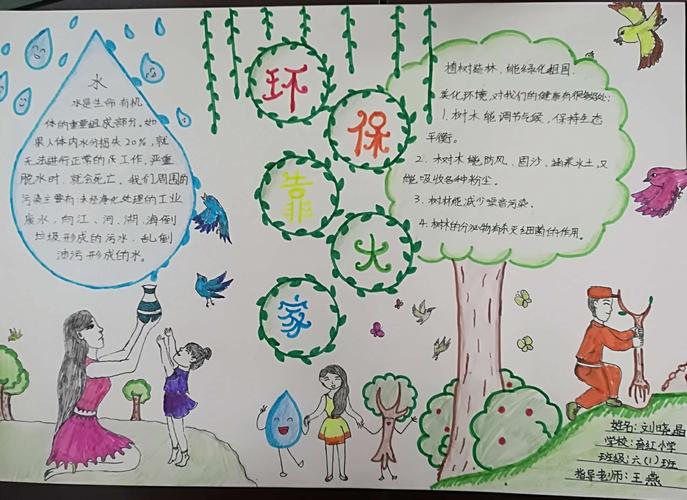 环
保
靠
大
家
水
水是生命有机
体的重要组成部分。如
果人体内水分损失20%,就
无法进行正常的工作,严重
脱水时,就会死亡。我们周围的
污染主要有:未经净化处理的工业
废水,向江、河、湖、海倒
垃圾形成的污水,乱倒
油污形成的水。
植树造林,能绿化祖国,
美化环境,对我们的健康有很多好处:
1.树木能调节气候,保持生态
平衡。
2.树木能防风、固沙、涵养水土,又
能吸收各种粉尘。
3.树林能减少噪音污染。
4.树林的分泌物有杀灭细菌的作用。
姓名:刘晓晶
学校:育红小学
班级:六(1)班
指导老师:王燕